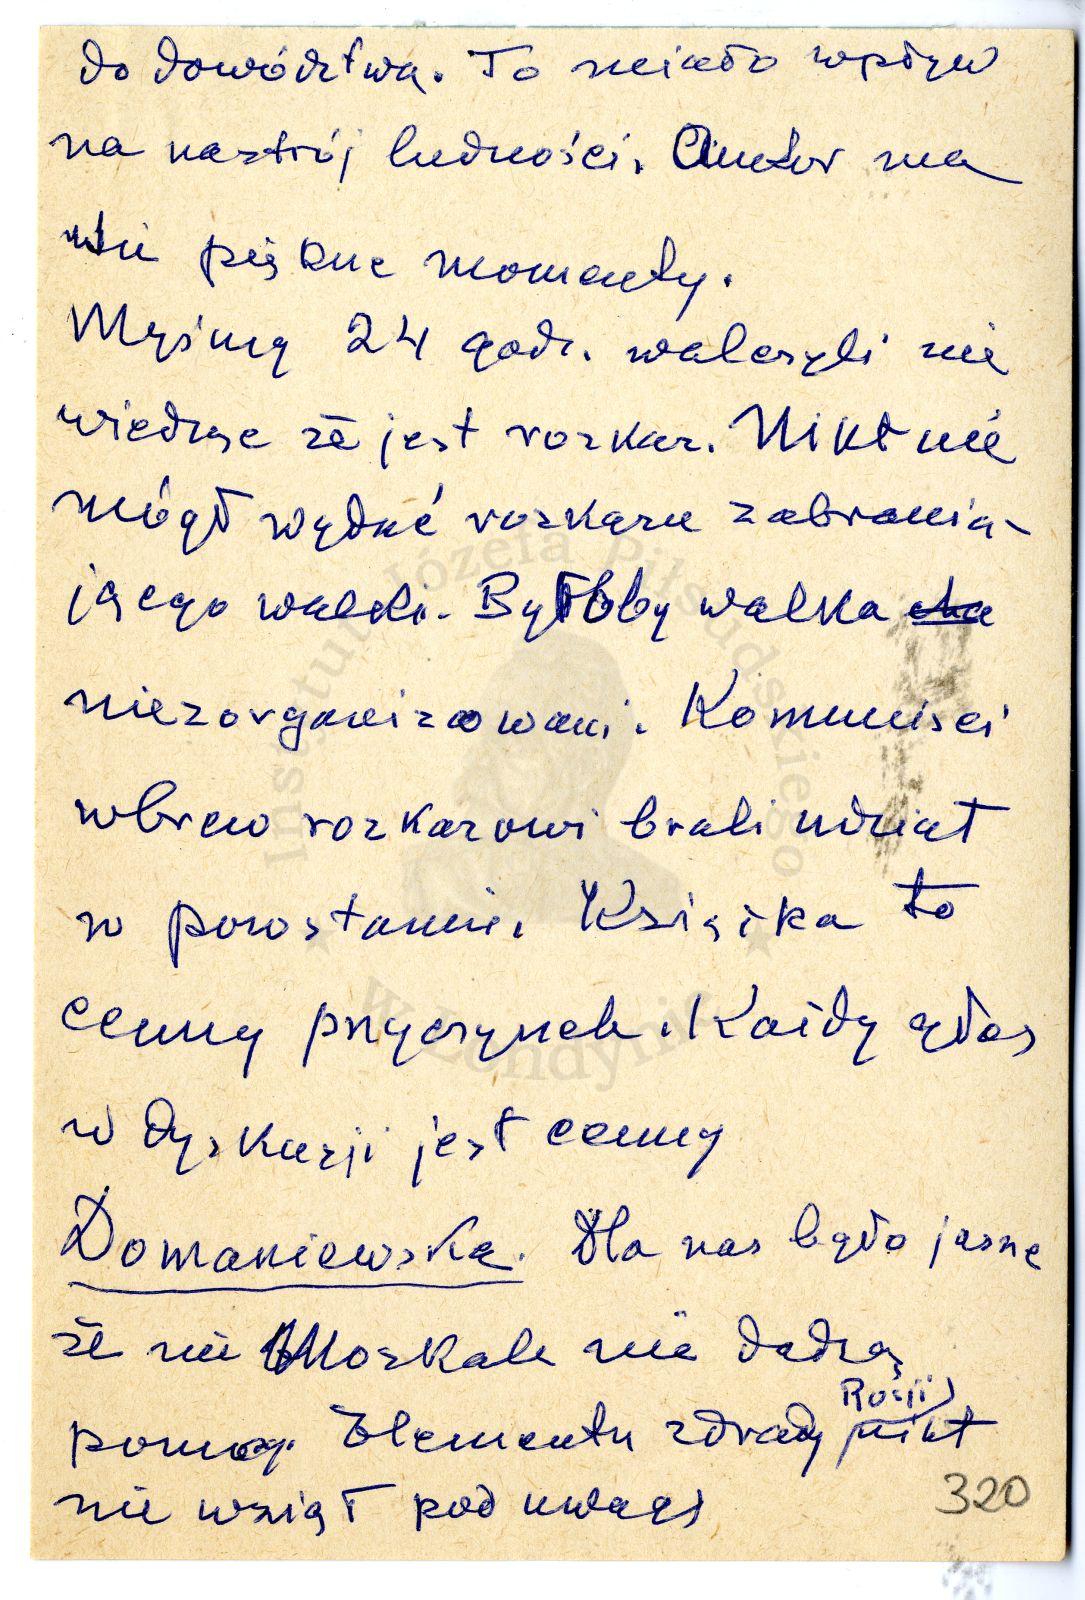 do dowództwa. To miało wpływ
na nastrój ludności. Autor ma
piękne momenty.
Myśmy 24 godz. walczyli nie
wiedząc że jest rozkaz. Nikt nie
mógł wydać rozkazu zabrania-
jącego walki. Byłbby walka
niezorganizowani. Komuniści
wbrew rozkazowi brali udział
w powstaniu. Książka to
cenny przyczynek. Każdy głos
w dyskusji jest cenny
Domaniewska. Dla nas było jasne
że nie Moskale nie dadzą
pomocy. Elementu zdrady Rosji nikt
nie wziął pod uwagę
320
Instytut Józefa Piłsudskiego
w Londynie